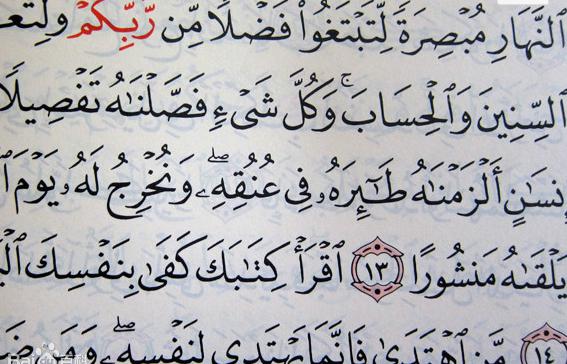 ٱلنَّهَارِ مُبۡصِرَةٗ لِّتَبۡتَغُواْ فَضۡلٗا مِّن رَّبِّكُمۡ
ٱلسِّنِينَ وَٱلۡحِسَابَۚ وَكُلَّ شَيۡءٖ فَصَّلۡنَٰهُ تَفۡصِيلٗا
إِنسَٰنٍ أَلۡزَمۡنَٰهُ طَٰٓئِرَهُۥ فِي عُنُقِهِۦۖ وَنُخۡرِجُ لَهُۥ يَوۡمَ
يَلۡقَىٰهُ مَنشُورًا ١٣ ٱقۡرَأۡ كِتَٰبَكَ كَفَىٰ بِنَفۡسِكَ
مَّنِ ٱهۡتَدَىٰ فَإِنَّمَا يَهۡتَدِي لِنَفۡسِهِۦۖ
Bai百科